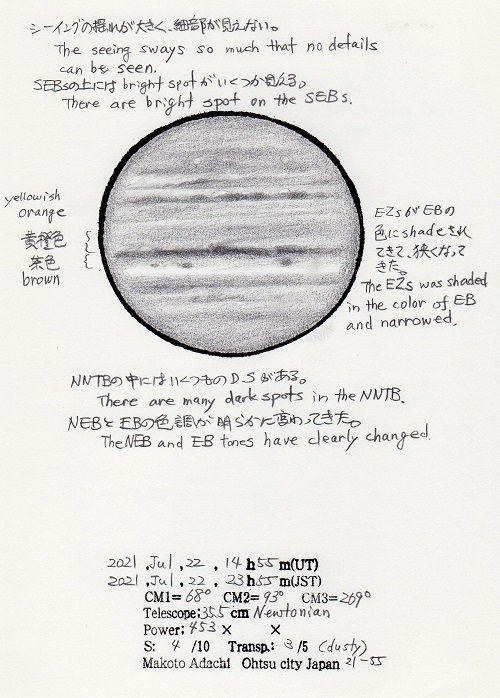 シーイングの揺れが大きく、細部が見えない。
The seeing sways so much that no details
can be seen.
SEBsの上には bright spot がいくつか見える。
There are bright spot on the SEBs.
yellowish
orange
黄橙色
茶色
brown
EZsがEBの
色にshadeされ
てきて、狭くなって
きた。
The EZs was shaded
in the color of EB
and narrowed.
NNTBの中にはいくつものD.Sがある。
There are many dark spots in the NNTB.
NEBとEBの色調が明らかに変わってきた。
The NEB and EB tones have clearly changed.
2021 ,Jul ,22 , 14 h 55 m(UT)
2021 ,Jul ,22 , 23 h 55 m(JST)
CM1= 68° CM2= 93° CM3= 269°
Telescope: 35.5 cm Newtonian
Power: 453 × ×
S: 4 /10 Transp.: 3 /5 (dusty)
Makoto Adachi Ohtsu city Japan 21-55